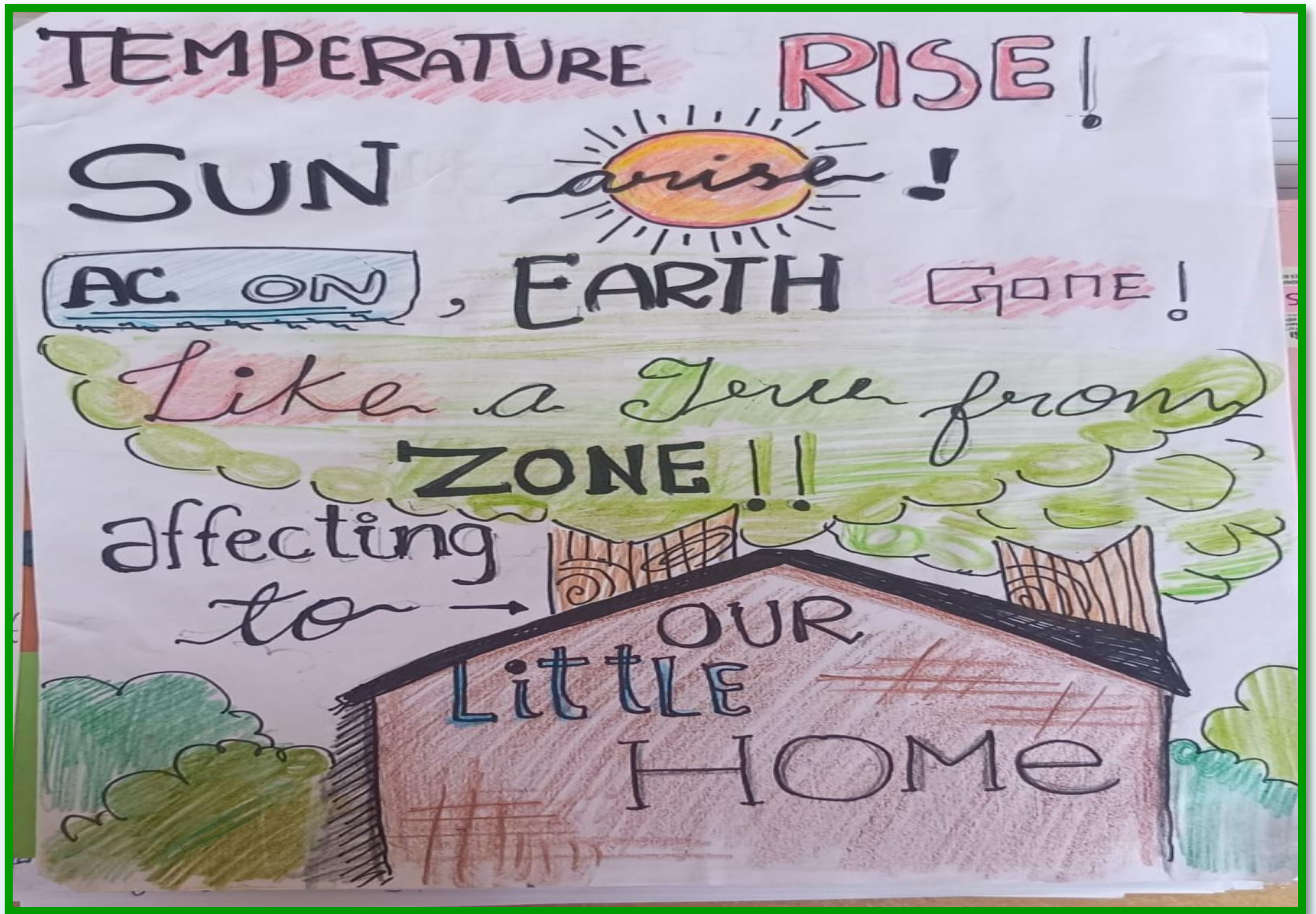 TEMPERATURE RISE!
SUN arise!
AC ON, EARTH GONE!
Like a Tree from
ZONE!!
affecting
to →
OUR
LittLE
HOMe